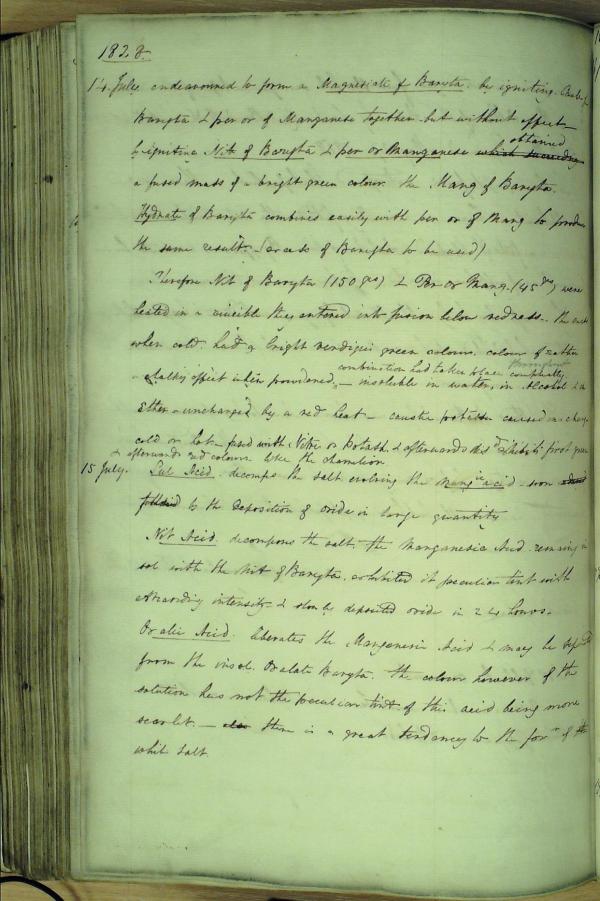 1828.
14 July endeavoured to form a Magnesiate of Baryta by igniting Carb. of
Baryta & per ox of Manganese together but without effect
by igniting Nit of Baryta & per ox Manganese which succeeding obtained
a fused mass of a bright green colour. the Mang of Baryta.
Hydrate of Baryta combines easily with per ox of Mang to produce
the same result. (excess of Baryta to be used)
Therefore Nit of Baryta (150 grs) & Per ox Mang. (45 grs) were
heated in a crucible they entered into fusion below redness. the
when cold. had a bright verdigris green colour. colour of rather
combination had taken place completely
a chalky effect when powdered, — insoluble in water, in Alcohol & in
Ether – unchanged by a red heat – caustic potassa caused no change
cold or hot – fused with Nitre or Potash & afterwards exhibits first green
& afterwards red colours like the chameleon
15 July. Sul Acid. decomps the salt evolving the Mangic acid – soon
followed by the deposition of oxide in large quantity
Nit Acid. decomposes the salt. the Manganesic Acid remaining in
sol with the Nit of Baryta. exhibited it peculiar tint with
intensity & slowly deposited oxide in 24 hours.
Oxalic Acid. liberates the Manganesic Acid & may be
from the insol. Oxalate Baryta. the colour however of the
solution has not the peculiar tint of this acid being more
scarlet. — also there is a great tendency to the forn of the
whit salt